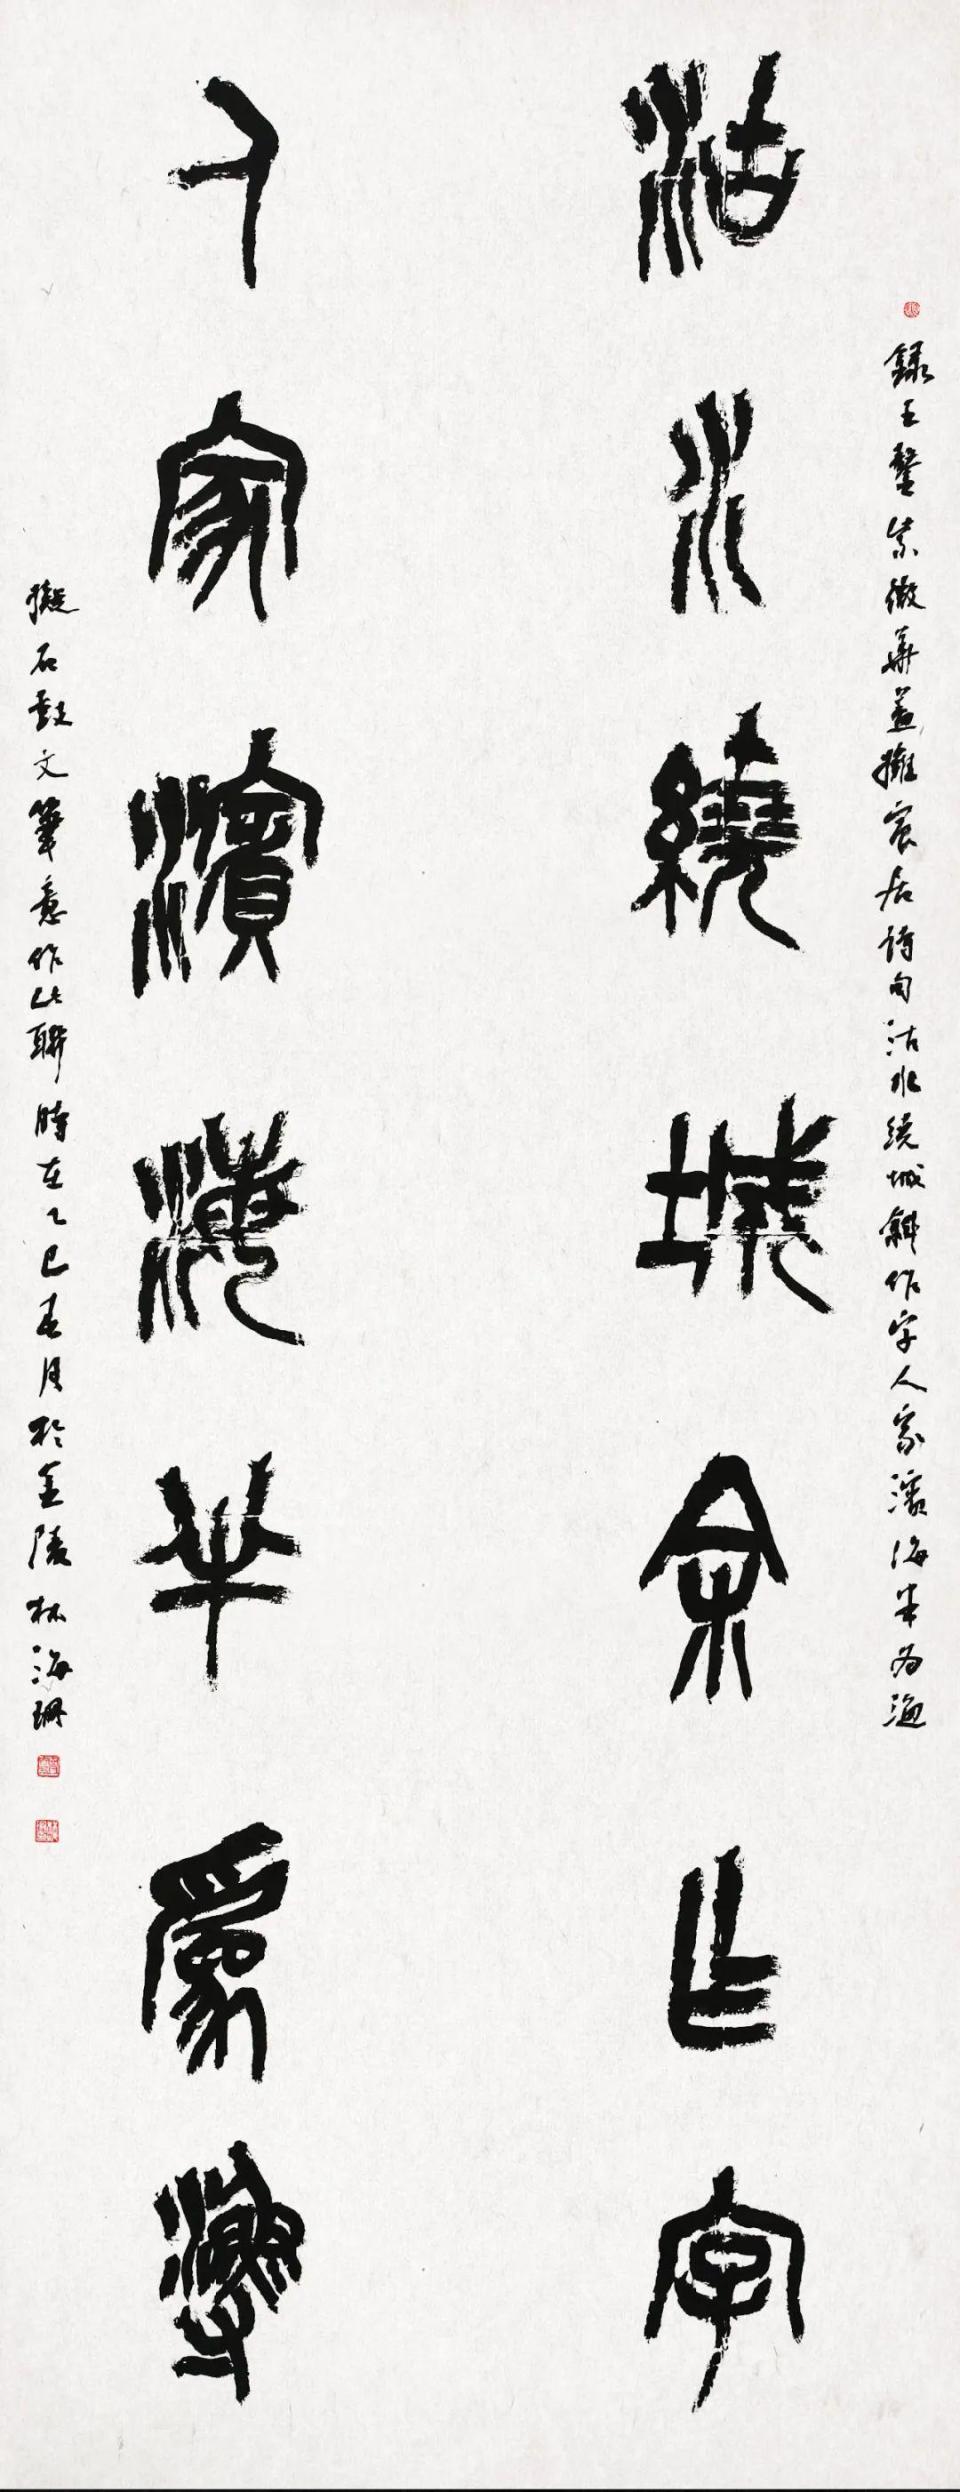 錄王鏊紫微華蓋擁宸居詩句沽水繞城斜作字人家濱海半為漁
沽水繞城余作字
人家濱海半為漁
擬石鼓文筆意作此聯時在乙巳春月於金陵林海珊